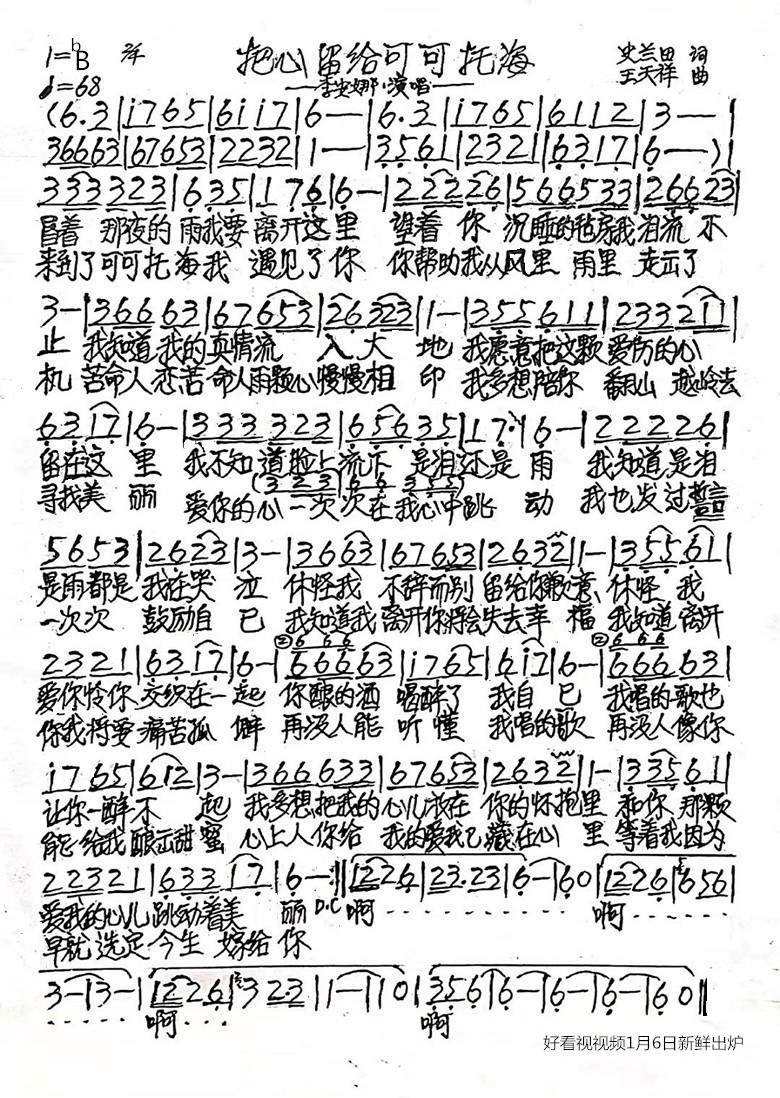 1=ᵇB 2/4 把心留给可可托海 史兰田 词
♩=68 —李安娜·演唱— 王天祥 曲
(6.3|i765|6i17|6—|6.3|i765|6112|3—|
36663|67653|2232|1—|3561|2321|6317|6—)|
333323|635|176|6—|222226|566533|26623|
冒着 那夜的雨我要离开这里 望着你 沉睡的毡房我泪流不
来到了可可托海我 遇见了你 你帮助我从风里雨里 走出了
3—|366663|67653|26323|1—|355611|233211|
止 我知道我的真情流 入大 地 我愿意把这颗爱伤的心
机 苦命人恋苦命人两颗心慢慢相 印 我多想陪你 翻山越岭去
6317|6—|333323|65635|17·|6—|222226|
留在这 里 我不知道脸上流下 是泪还是 雨 我知道是泪
(323 663 55)
寻找美 丽 爱你的心一次次在我心中跳 动 我也发过誓言
5653|2623|3—|3663|67653|2632|1—|35561|
是雨都是 我在哭 泣 休怪我 不辞而别 留给你歉意 休怪 我
一次次 鼓励自 己 我知道我离开你将会失去幸 福 我知道离开
② 666 ② 666
2321|6317|6—|66663|i765|6i7|6—|66663|
爱你怜你交织在一起 你酿的酒 喝醉了 我自 己 我唱的歌也
你我将受痛苦孤 僻 再没人能 听懂 我唱的歌 再没人像你
i765|612|3—|366633|67653|2632|1—|33561|
让你一醉不 起 我多想把我的心儿放在 你的怀抱里 和你那颗
能给我酿出甜蜜 心上人你给 我的爱我已藏在心 里 等着我因为
22321|63317|6—:‖1226|23.23|6—|60|1226|656|
爱我的心儿跳动着美 丽 D.C 啊 - - - - - - - - 啊 - - - - - -
早就选定今生 嫁给你
3—|3—|1226|323|1—|10|356|6—|6—|6—|60‖
- - - - - 啊 - - - 啊
好看视视频1月6日新鲜出炉